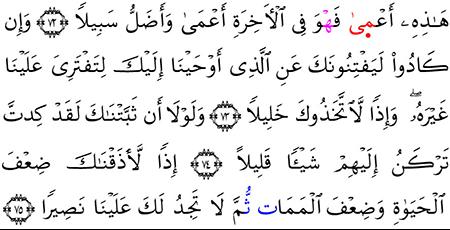 هَـٰذِهِۦٓ أَعۡمِىٰ فَهُوَ فِى ٱلۡأَخِرَةِ أَعۡمَىٰ وَأَضَلُّ سَبِيلًا ﴿٧٢﴾ وَإِن
كَادُواْ لَيَفۡتِنُونَكَ عَنِ ٱلَّذِىٓ أَوۡحَيۡنَآ إِلَيۡكَ لِتَفۡتَرِىَ عَلَيۡنَا
غَيۡرَهُۥۖ وَإِذًا لَّٱتَّخَذُوكَ خَلِيلًا ﴿٧٣﴾ وَلَوۡلَآ أَن ثَبَّتۡنَـٰكَ لَقَدۡ كِدتَّ
تَرۡكَنُ إِلَيۡهِمۡ شَيۡـًٔا قَلِيلًا ﴿٧٤﴾ إِذًا لَّأَذَقۡنَـٰكَ ضِعۡفَ
ٱلۡحَيَوٰةِ وَضِعۡفَ ٱلۡمَمَاتِ ثُمَّ لَا تَجِدُ لَكَ عَلَيۡنَا نَصِيرًا ﴿٧٥﴾